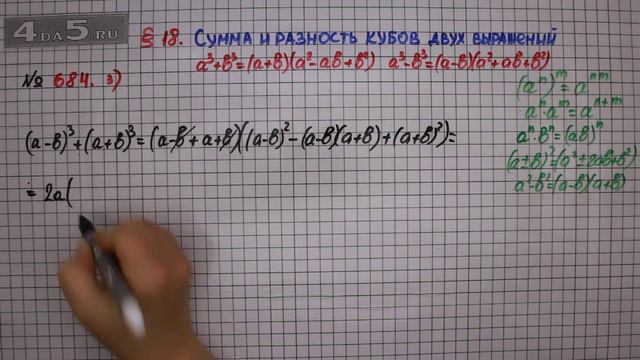 4DA5.RU
§ 18. Сумма и разность кубов двух выражений
a³+b³=(a+b)(a²-ab+b²) a³-b³=(a-b)(a²+ab+b²)
№ 684. з)
(aⁿ)ᵐ=aⁿᵐ
aⁿ·aᵐ=aⁿ⁺ᵐ
aⁿ·bⁿ=(ab)ⁿ
(a±b)²=(a²±2ab+b²)
a²-b²=(a-b)(a+b)
(a-b)³+(a+b)³=(a-b+a+b)((a-b)²-(a-b)(a+b)+(a+b)²)=
= 2a(